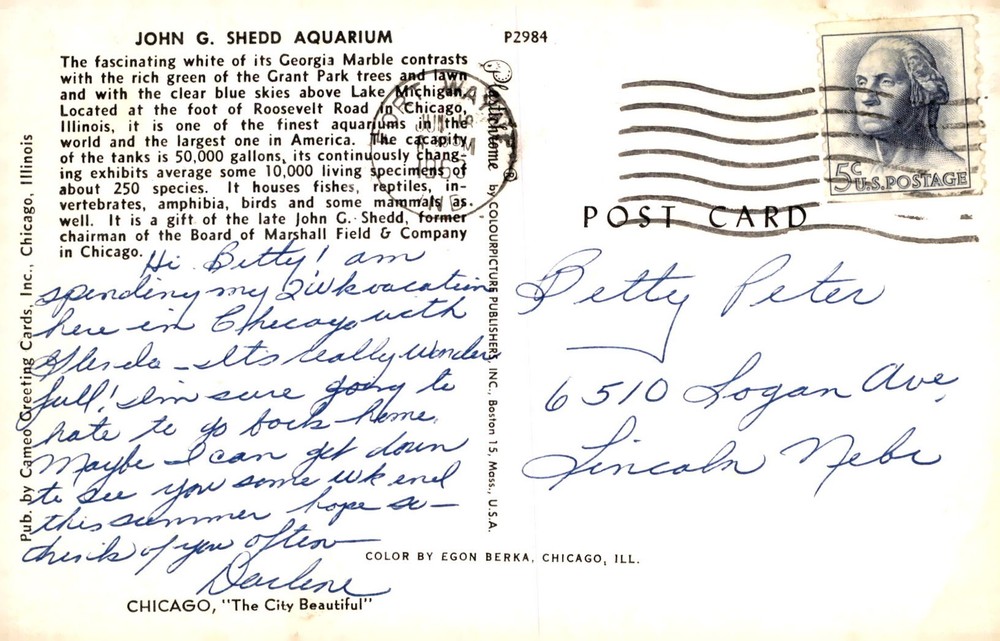 JOHN G. SHEDD AQUARIUM
The fascinating white of its Georgia Marble contrasts
with the rich green of the Grant Park trees and lawn
and with the clear blue skies above Lake Michigan.
Located at the foot of Roosevelt Road in Chicago,
Illinois, it is one of the finest aquariums in the
world and the largest one in America. The cacapity
of the tanks is 50,000 gallons, its continously chang-
ing exhibits average some 10,000 living specimens of
about 250 species. It houses fishes, reptiles, in-
vertebrates, amphibia, birds and some mammals as
well. It is a gift of the late John G. Shedd, former
chairman of the Board of Marshall Field & Company
in Chicago.
Hi Betty! am
spending my 2 wk vacation
here in Chicago with
Glenda - Its really wonder
full! I'm sure going to
hate to go back home.
Maybe I can get down
to see you some wk end
this summer hope so -
think of you often
Darlene
CHICAGO, "The City Beautiful"
Pub. by Cameo Greeting Cards, Inc., Chicago, Illinois
P2984
Plastichrome ® by COLOURPICTURE PUBLISHERS, INC., Boston 15, Mass., U.S.A.
WAYNE
JUN
PM
IND
5c U.S. POSTAGE
POST CARD
Betty Peter
6510 Logan Ave,
Lincoln Nebr
COLOR BY EGON BERKA, CHICAGO, ILL.